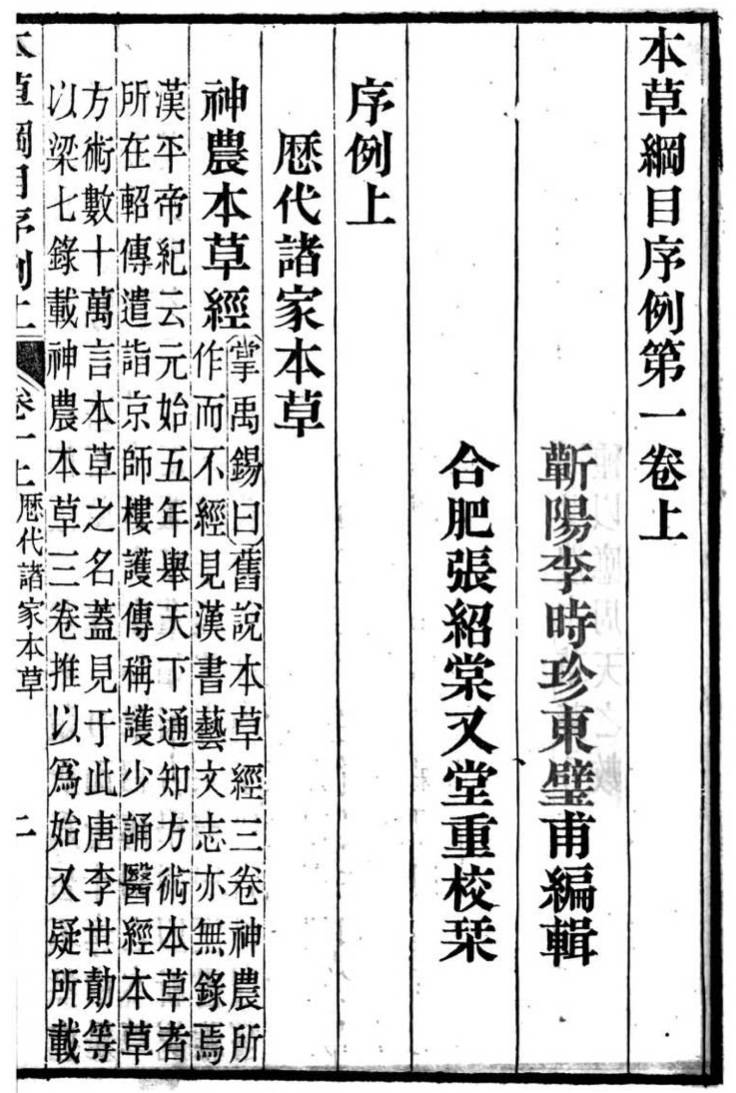 本草綱目序例第一卷上
蘄陽李時珍東璧甫編輯
合肥張紹棠又堂重校栞
序例上
歴代諸家本草
神農本草經
掌禹錫曰舊說本草經三卷神農所
作而不經見漢書藝文志亦無錄焉
漢平帝紀云元始五年舉天下通知方術本草者
所在軺傳遣詣京師樓護傳稱護少誦醫經本草
方術數十萬言本草之名蓋見于此唐李世勣等
以梁七錄載神農本草三卷推以爲始又疑所載
本草綱目序例上 卷一上 歴代諸家本草 二